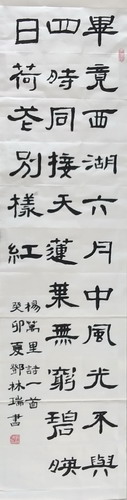 畢竟西湖六月中風光不與
四時同接天蓮葉無窮碧映
日荷花別樣紅
楊萬里詩一首
癸卯夏鄧林瑞書